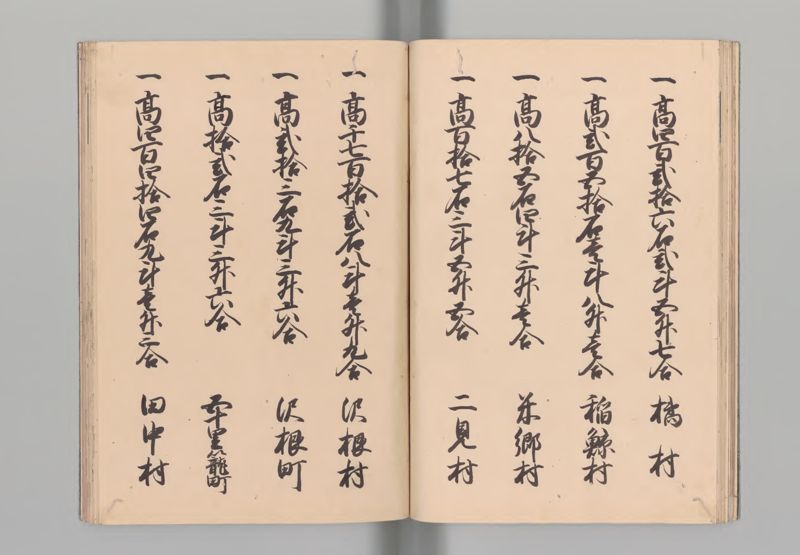 一 高四百弐拾六石弐斗五升七合 橘村
一 高弐百五拾石壱斗八升壱合 稲鯨村
一 高八拾五石四斗三升壱合 米郷村
一 高百拾七石三斗五升五合 二見村
一 高千七百拾弐石八斗壱升九合 沢根村
一 高弐拾三石九斗三升六合 沢根町
一 高拾弐石三斗三升六合 五十里籠町
一 高四百四拾四石九斗壱升二合 田中村